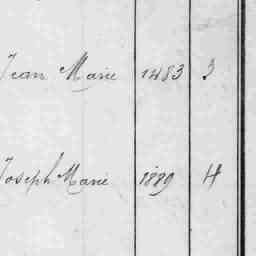 Jean Marie 1883 3
Joseph Marie 1889 4